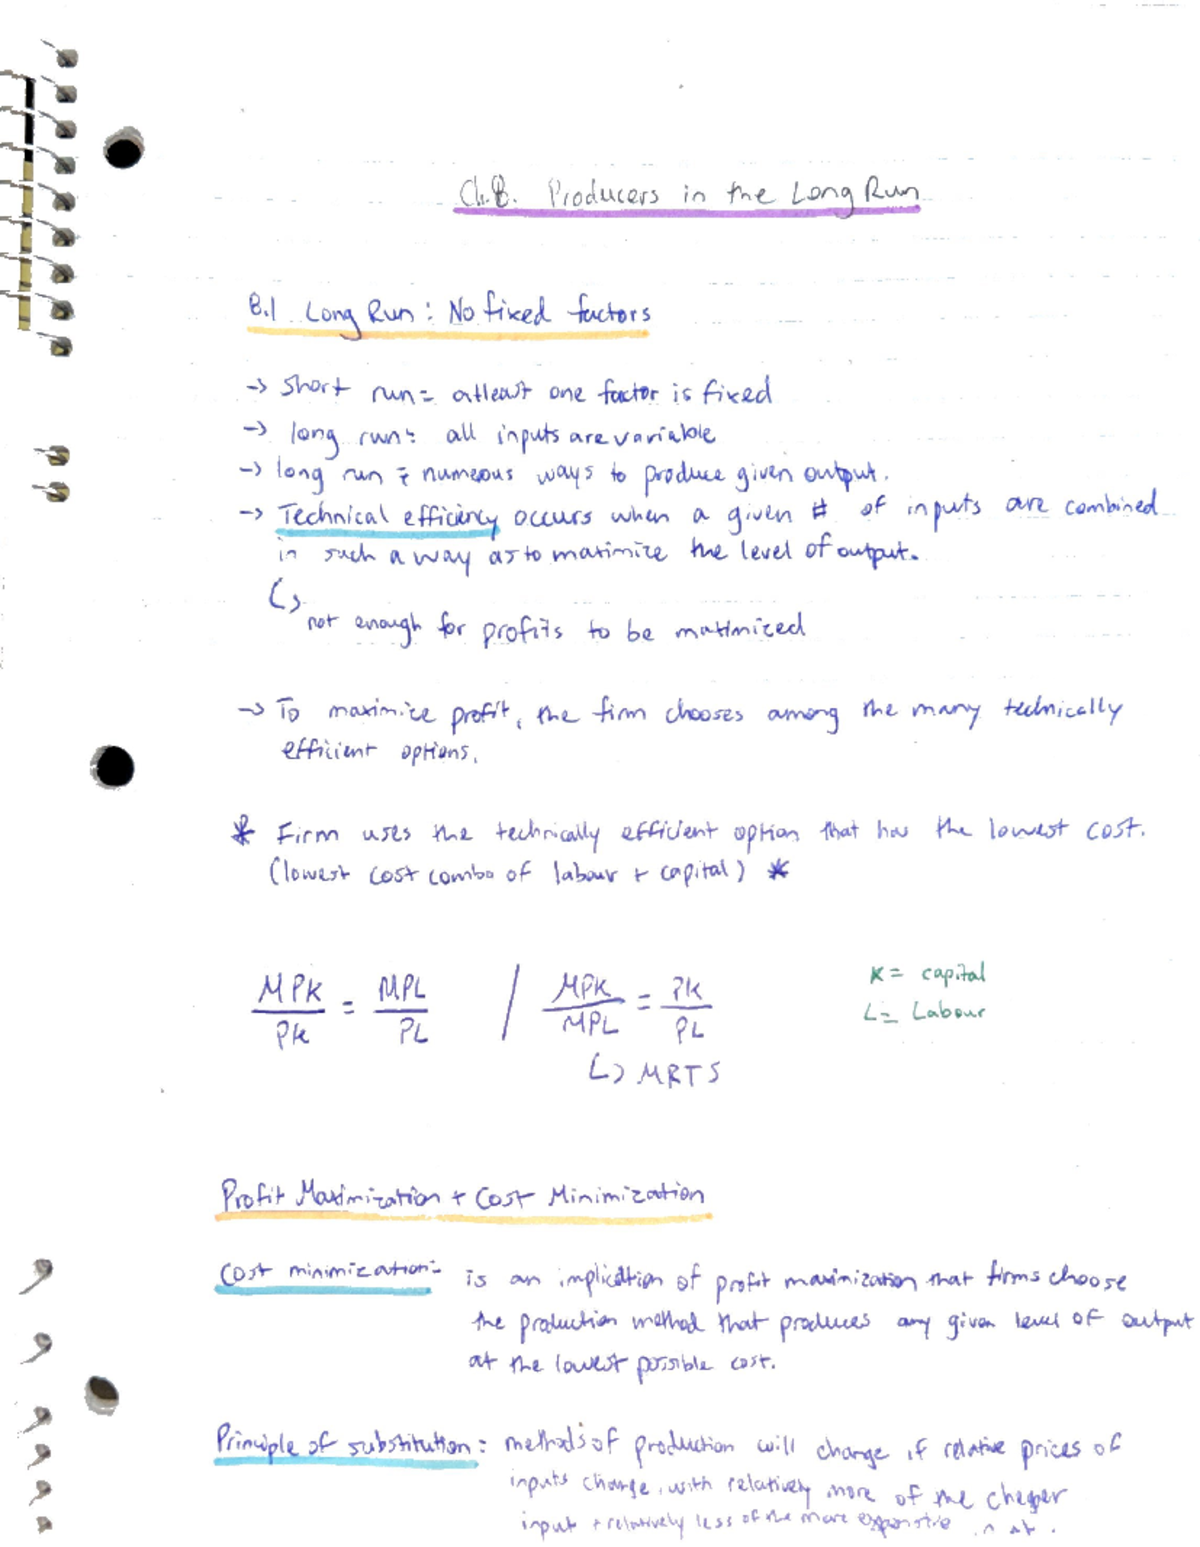 Ch.8. Producers in the Long Run
8.1 Long Run: No fixed factors
-> Short run= atleast one factor is fixed
-> long run: all inputs are variable
-> long run = numerous ways to produce given output.
-> Technical efficiency occurs when a given # of inputs are combined
in such a way as to maximize the level of output.
↳ not enough for profits to be maximized
-> To maximize profit, the firm chooses among the many technically
efficient options.
* Firm uses the technically efficient option that has the lowest cost.
(lowest cost combo of labour + capital) *
MPK/PK = MPL/PL / MPK/MPL = PK/PL
K = capital
L = Labour
↳ MRTS
Profit Maximization + Cost Minimization
Cost minimization= is an implication of profit maximization that firms choose
the production method that produces any given level of output
at the lowest possible cost.
Principle of substitution: methods of production will change if relative prices of
inputs change, with relatively more of the cheaper
input + relatively less of the more expensive